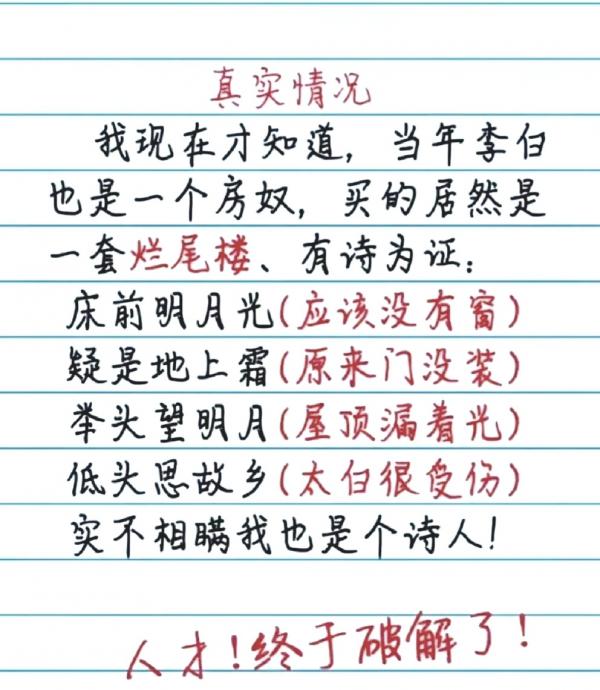 真实情况
我现在才知道，当年李白
也是一个房奴，买的居然是
一套烂尾楼、有诗为证：
床前明月光(应该没有窗)
疑是地上霜(原来门没装)
举头望明月(屋顶漏着光)
低头思故乡(太白很受伤)
实不相瞒我也是个诗人!
人才!终于破解了!